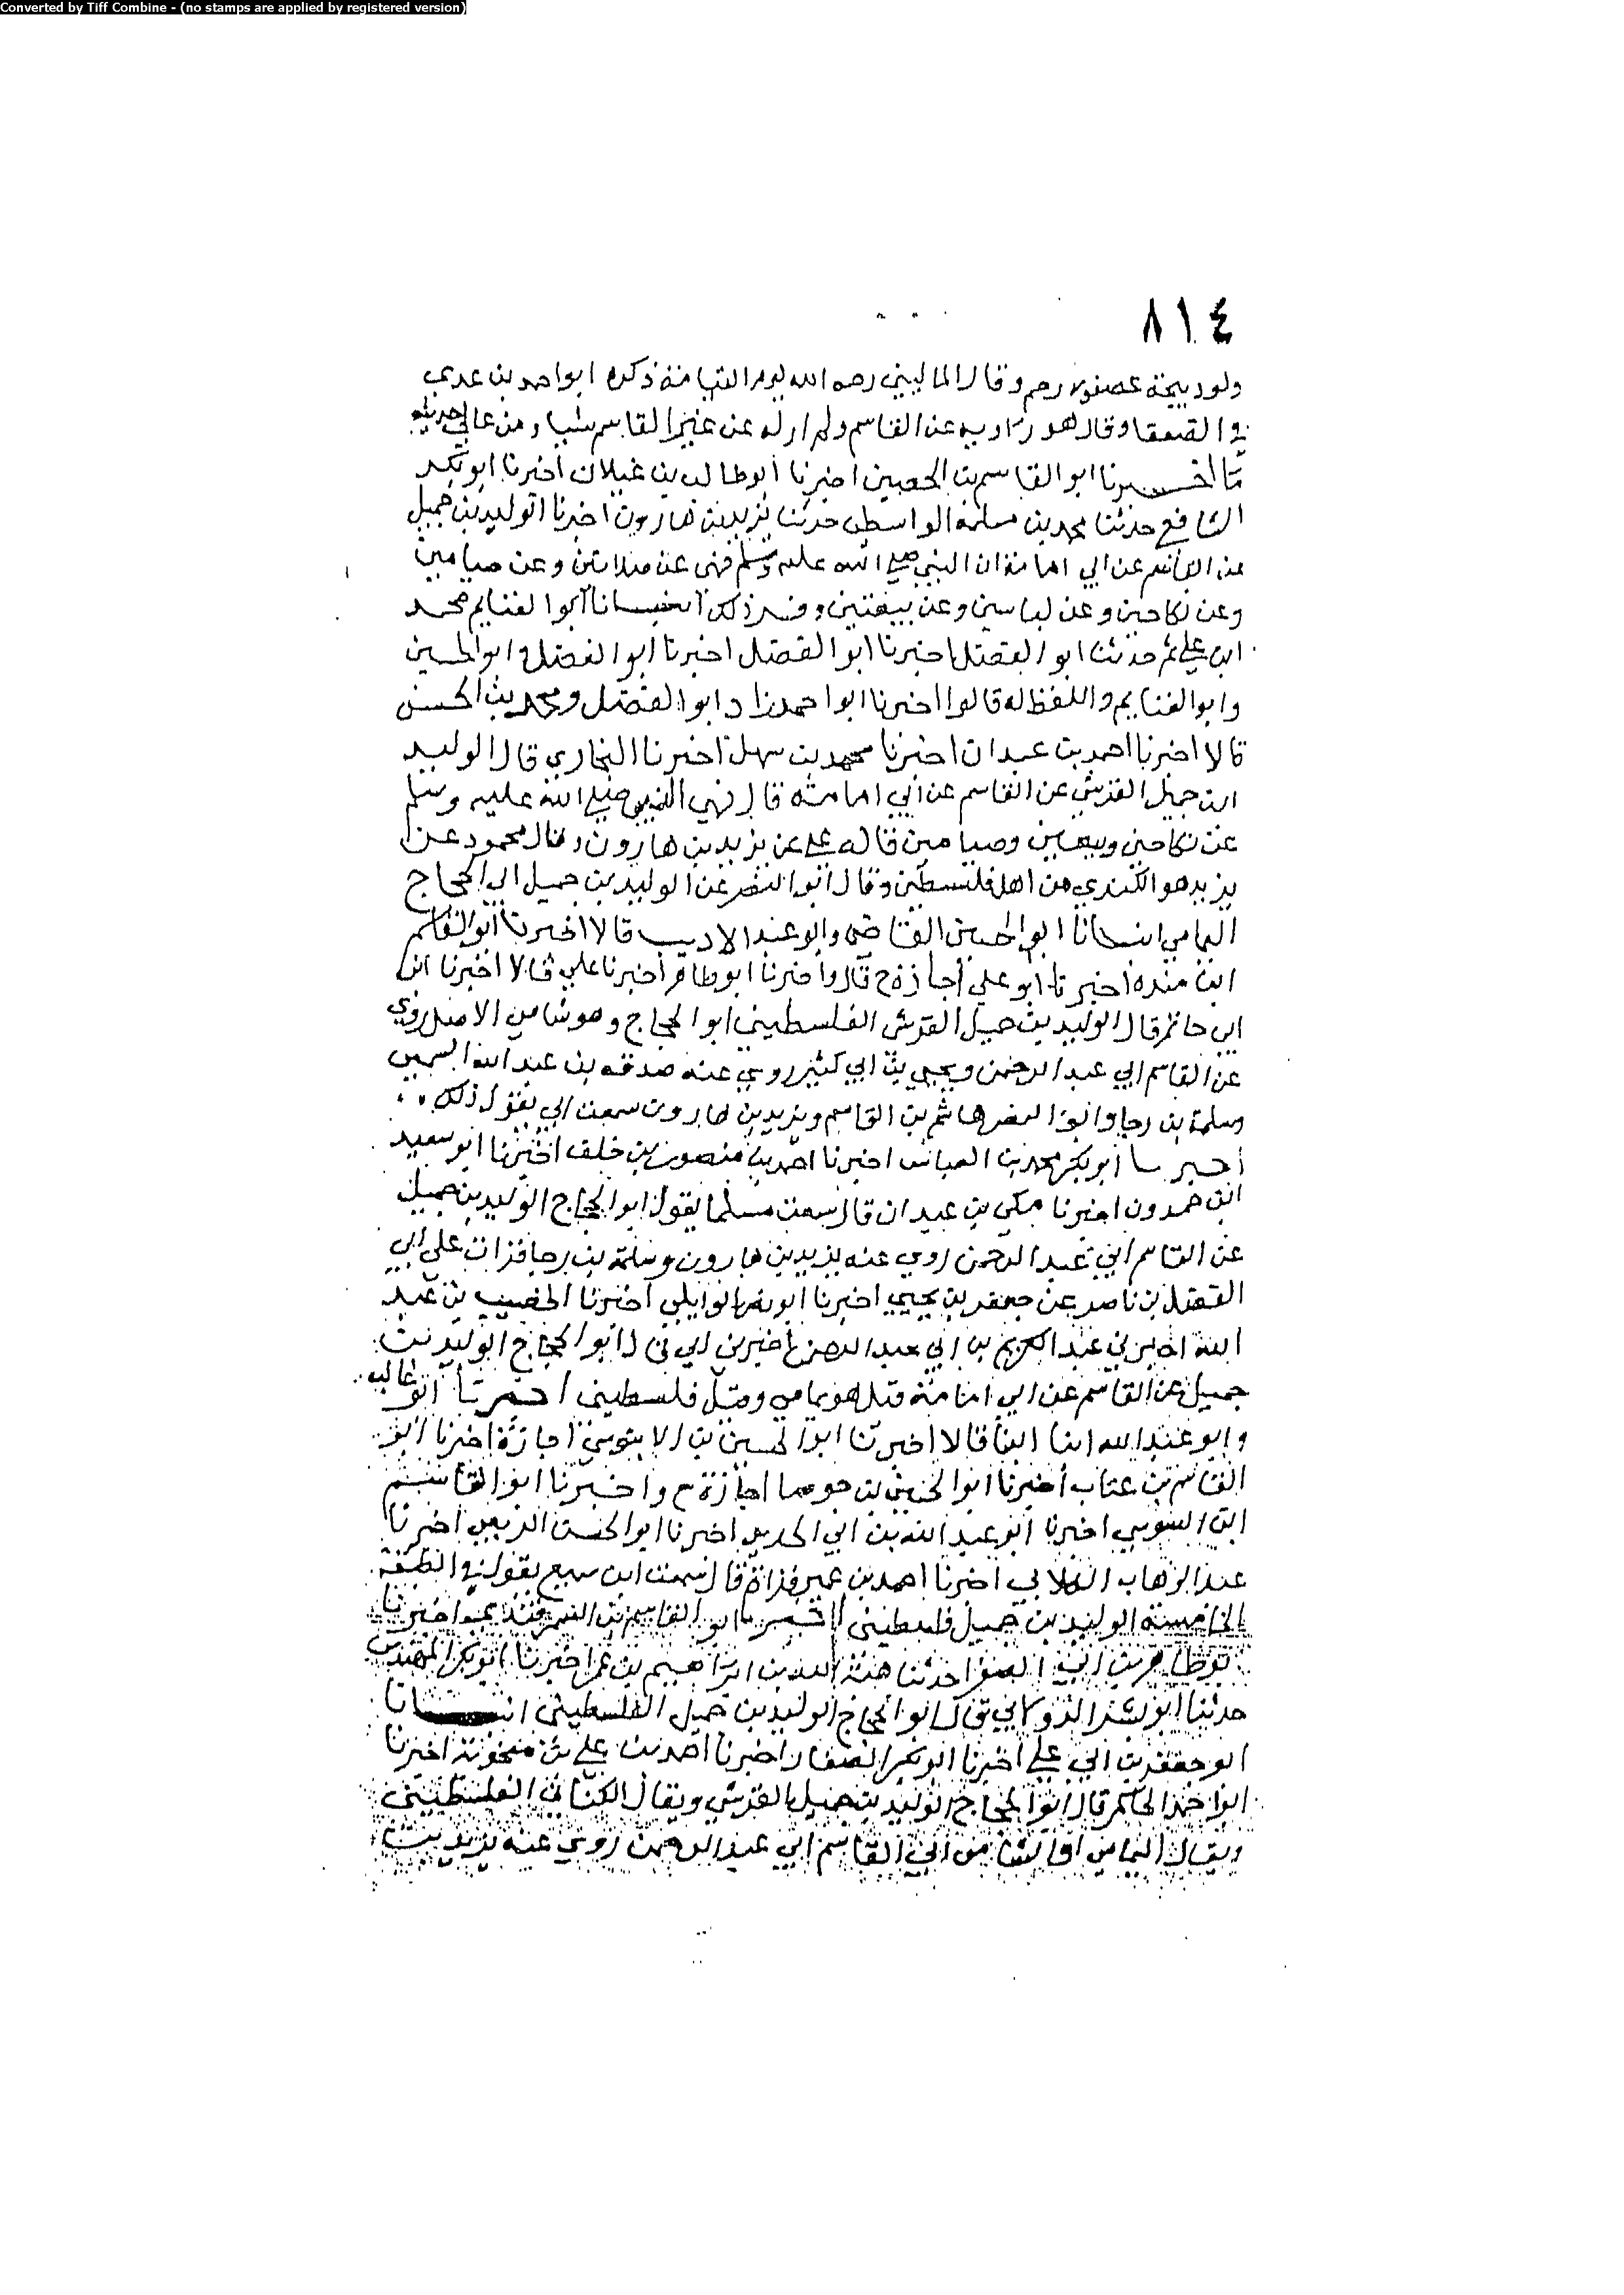 Converted by Tiff Combine - (no stamps are applied by registered version)
٨١٤
ولو ذبيحة عصفور رحم وقال الماليني رحمه الله يوم القيامة ذكره ابو احمد بن عدي
في الضعفا وقال هو راويه عن القاسم ولم ار له عن غير القاسم شيا ومن عالي حديثه
ما اخبرنا ابو القاسم بن الحصين اخبرنا ابو طالب بن غيلان اخبرنا ابو بكر
الشافعي حدثنا محمد بن مسلمة الواسطي حدثنا يزيد بن هارون اخبرنا الوليد بن جميل
عن القاسم عن ابي امامة ان النبي صلى الله عليه وسلم نهى عن صلاتين وعن صيامين
وعن نكاحين وعن لباسين وعن بيعتين وفسر ذلك انبانا ابو الغنايم محمد
ابن علي ثم حدثنا ابو الفضل اخبرنا ابو الفضل اخبرنا ابو الفضل وابو الحسين
وابو الغنايم واللفظ له قالوا اخبرنا ابو احمد زاد ابو الفضل ومحمد بن الحسن
قالا اخبرنا احمد بن عبدان اخبرنا محمد بن سهل اخبرنا البخاري قال الوليد
ابن جميل القرشي عن القاسم عن ابي امامة قال نهى النبي صلى الله عليه وسلم
عن نكاحين وبيعتين وصيامين قاله علي عن يزيد بن هارون وقال محمود عن
يزيد هو الكندي من اهل فلسطين وقال ابو النضر عن الوليد بن جميل ابي الحجاج
اليمامي انبانا ابو الحسين القاضي وابو عبد الاديب قالا اخبرنا ابو القاسم
ابن منده اخبرنا ابو علي اجازة ح قال واخبرنا ابو طاهر اخبرنا علي قالا اخبرنا ابن
ابي حاتم قال الوليد بن جميل القرشي الفلسطيني ابو الحجاج وهو شامي الاصل روى
عن القاسم ابي عبد الرحمن ويحيى بن ابي كثير روى عنه صدقه بن عبد الله السمين
وسلمة بن رجا وابو النضر هاشم بن القاسم ويزيد بن هارون سمعت ابي يقول ذلك
اخبرنا ابو بكر محمد بن العباس اخبرنا احمد بن منصور بن خلف اخبرنا ابو سعيد
ابن حمدون اخبرنا مكي بن عبدان قال سمعت مسلما يقول ابو الحجاج الوليد بن جميل
عن القاسم ابي عبد الرحمن روى عنه يزيد بن هارون وسلمة بن رجا قرات على ابي
الفضل بن ناصر عن جعفر بن يحيى اخبرنا ابو نصر الوايلي اخبرنا الخصيب بن عبد
الله اخبرني عبد الكريم بن ابي عبد الرحمن اخبرني ابي قال ابو الحجاج الوليد بن
جميل عن القاسم عن ابي امامة قيل هو يمامي وقيل فلسطيني اخبرنا ابو غالب
وابو عبد الله ابنا البنا قالا اخبرنا ابو الحسين بن الابنوسي اجازة اخبرنا ابو
القاسم بن عتاب اخبرنا ابو الحسن بن جوصا اجازة ح واخبرنا ابو القاسم
ابن السوسي اخبرنا ابو عبد الله بن ابي الحديد اخبرنا ابو الحسن الربعي اخبرنا
عبد الوهاب الكلابي اخبرنا احمد بن عمير قراة قال سمعت ابن سميع يقول في الطبقة
الخامسة الوليد بن جميل فلسطيني اخبرنا ابو القاسم بن السمرقندي اخبرنا
ابو طاهر بن ابي الصقر احدثنا هبة الله بن ابراهيم بن عمر اخبرنا ابو بكر المهندس
حدثنا ابو بشر الدولابي قال ابو الحجاج الوليد بن جميل الفلسطيني انبانا
ابو جعفر بن ابي علي اخبرنا ابو بكر الصفار اخبرنا احمد بن علي بن منجويه اخبرنا
ابو احمد الحاكم قال ابو الحجاج الوليد بن جميل القرشي ويقال الكناني الفلسطيني
ويقال اليمامي القاسم ابي عبد الرحمن روى عنه يزيد بن